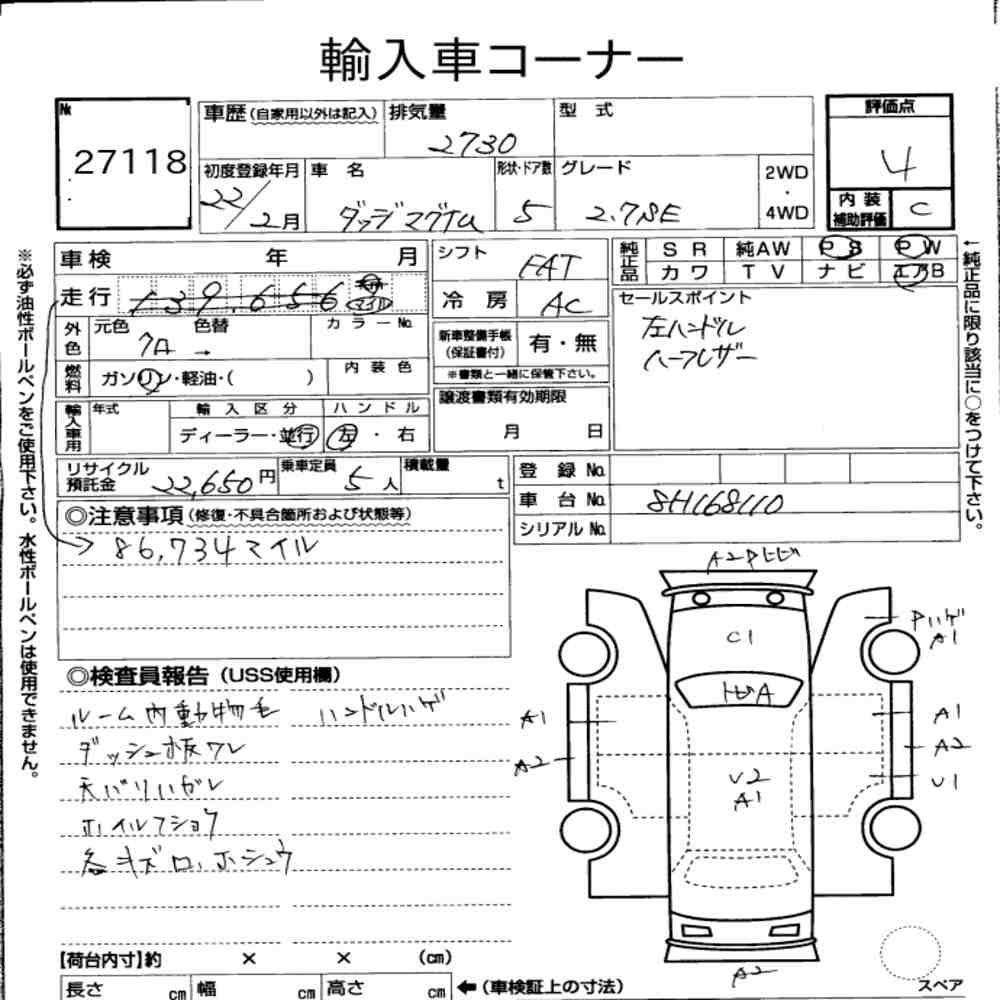 輸入車コーナー
№ 27118
車歴(自家用以外は記入)
排気量 2730
型 式
評価点 4
内装補助評価 C
初度登録年月 22/2月
車 名 ダッジマグナム
形状・ドア数 5
グレード 2.7 SE
2WD・4WD
車検 年 月
シフト FAT
純正品 SR 純AW PS PW
カワ TV ナビ エアB
走行 139,656 マイル
冷房 AC
セールスポイント
左ハンドル
ハーフレザー
外色 元色 7A → 色替 カラーNo.
新車整備手帳(保証書付) 有・無
※書類と一緒に保管下さい。
燃料 ガソリン・軽油・( )
内装色
譲渡書類有効期限
月 日
輸入車用 年式
輸入区分 ディーラー・並行
ハンドル 左・右
リサイクル預託金 22,650円
乗車定員 5人
積載量 t
登録No.
車台No. 8H168110
シリアルNo.
◎注意事項(修復・不具合箇所および状態等)
86,734マイル
◎検査員報告(USS使用欄)
ルーム内動物毛 ハンドルハゲ
ダッシュ板ワレ
天バリハガレ
ホイルフショク
各キズ凹、ホシュウ
A2Pヒビ
C1
トビA
PハゲA1
A1
A2
V2
A1
A1
A2
U1
A2
スペア
【荷台内寸】約 × × (cm)
長さ cm 幅 cm 高さ cm ←(車検証上の寸法)
※必ず油性ボールペンをご使用下さい。水性ボールペンは使用できません。
←純正品に限り該当に○をつけて下さい。